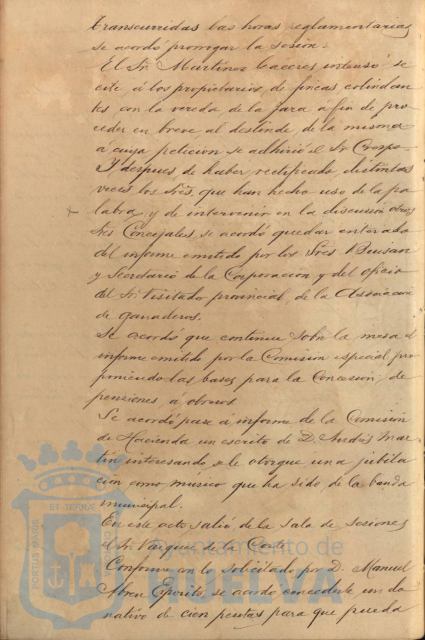 transcurridas las horas reglamentarias
se acordó prorrogar la sesión.
El Sr. Martinez Caceres interesó se
cite á los propietarios de fincas colindan
tes con la vereda de la Jara á fin de pro
ceder en breve al deslinde de la misma
á cuya peticion se adhirió el Sr. Crespo.
Y despues de haber rectificado distintas
veces los Sres. que han hecho uso de la pa
labra y de intervenir en la discusión otros
Sres Concejales, se acordó quedar enterado
del informe emitido por los Sres
y Secretario de la Corporación y del oficio
del Sr. Visitador provincial, de la Asociacion
de ganaderos.
Se acordó que continue sobre la mesa el
informe emitido por la Comision especial pro
poniendo las bases para la Concesión de
pensiones á obreros
Se acordó pase á informe de la Comisión
de Hacienda un escrito de D. Andrés Mar
tin interesando se le otorgue una jubila
cion como musico que ha sido de la banda
municipal.
En este acto salió de la Sala de Sesiones
el Sr. Vazquez de la Corte.
Conforme con lo solicitado por D. Manuel
Abreu Exposito, se acordó concederle un do
nativo de cien pesetas para que pueda
PORTUS MARIS
ET TERRÆ
Ayuntamiento de
HUELVA